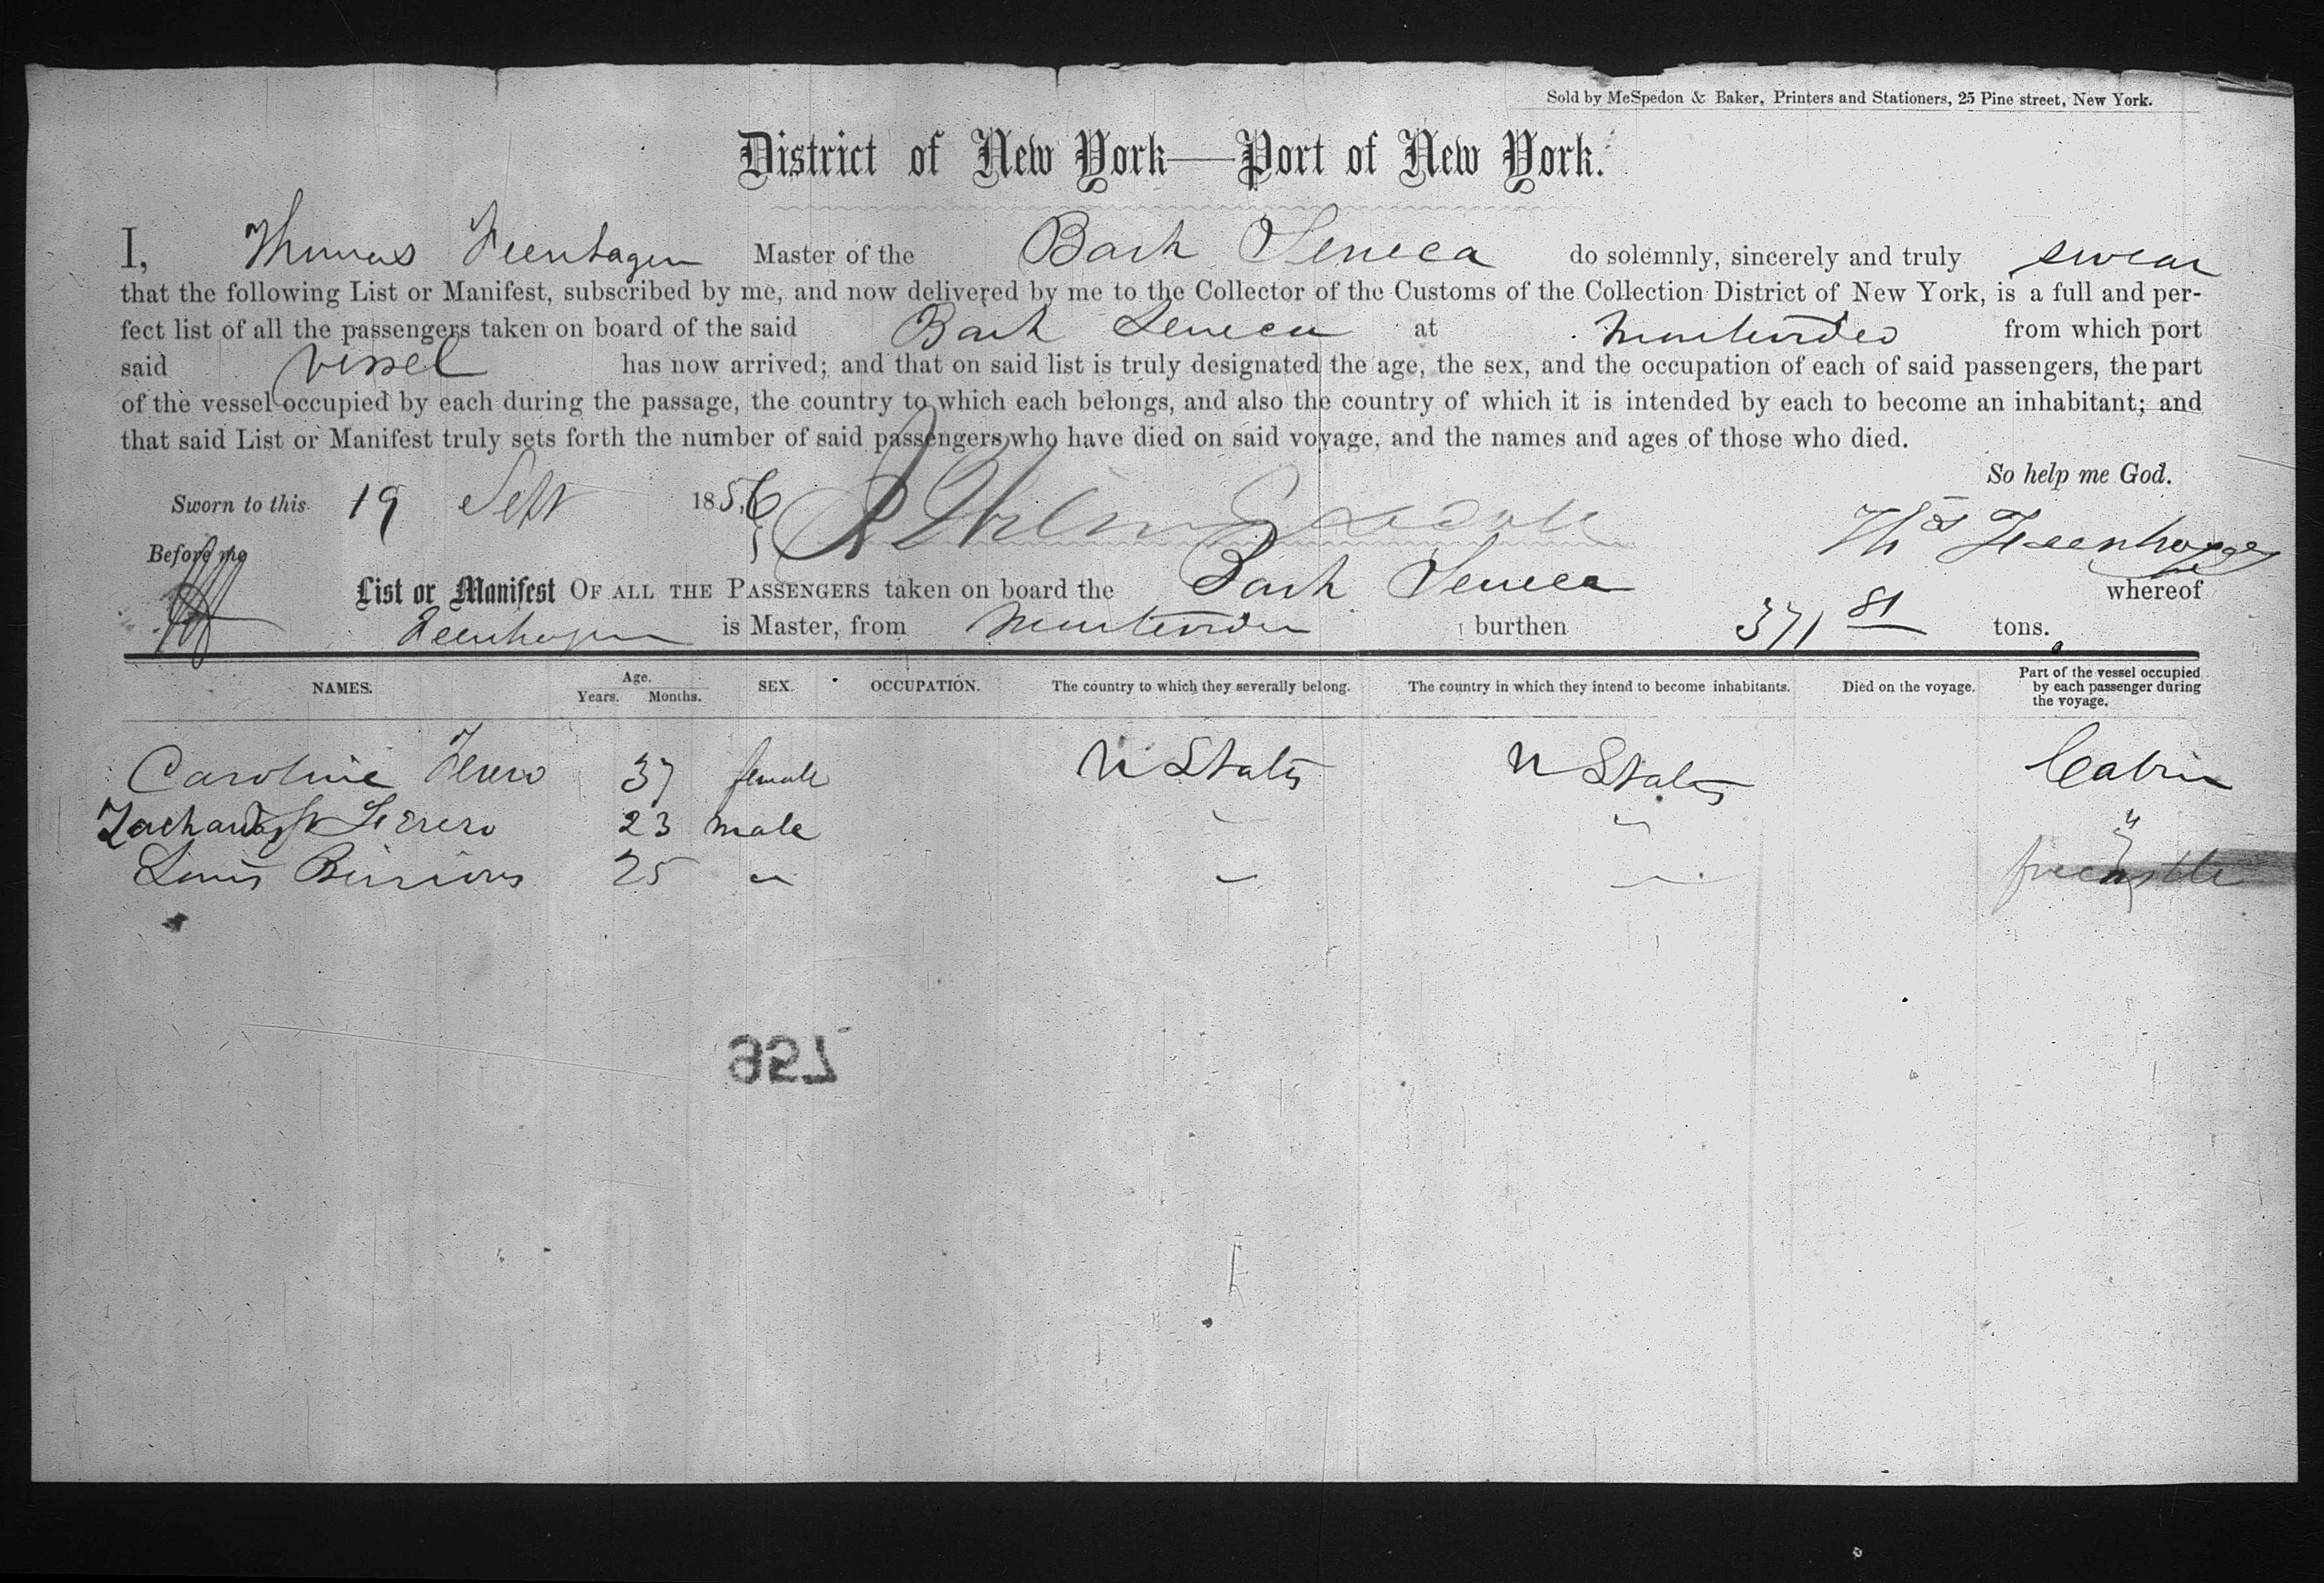 Sold by McSpedon & Baker, Printers and Stationers, 25 Pine street, New York.
District of New York—Port of New York.
I, Thomas Feenhagen Master of the Bark Seneca do solemnly, sincerely and truly swear
that the following List or Manifest, subscribed by me, and now delivered by me to the Collector of the Customs of the Collection District of New York, is a full and per-
fect list of all the passengers taken on board of the said Bark Seneca at Montevideo from which port
said vessel has now arrived; and that on said list is truly designated the age, the sex, and the occupation of each of said passengers, the part
of the vessel occupied by each during the passage, the country to which each belongs, and also the country of which it is intended by each to become an inhabitant; and
that said List or Manifest truly sets forth the number of said passengers who have died on said voyage, and the names and ages of those who died.
So help me God.
Sworn to this 19 Sept 1856 Thos Feenhagen
Before me
List or Manifest OF ALL THE PASSENGERS taken on board the Bark Seneca whereof
Feenhagen is Master, from Montevideo burthen 371 81 tons.
NAMES. Age. Years. Months. SEX. OCCUPATION. The country to which they severally belong. The country in which they intend to become inhabitants. Died on the voyage. Part of the vessel occupied by each passenger during the voyage.
Caroline 37 female U States U States Cabin
23 male " " "
Louis 25 " " "
756